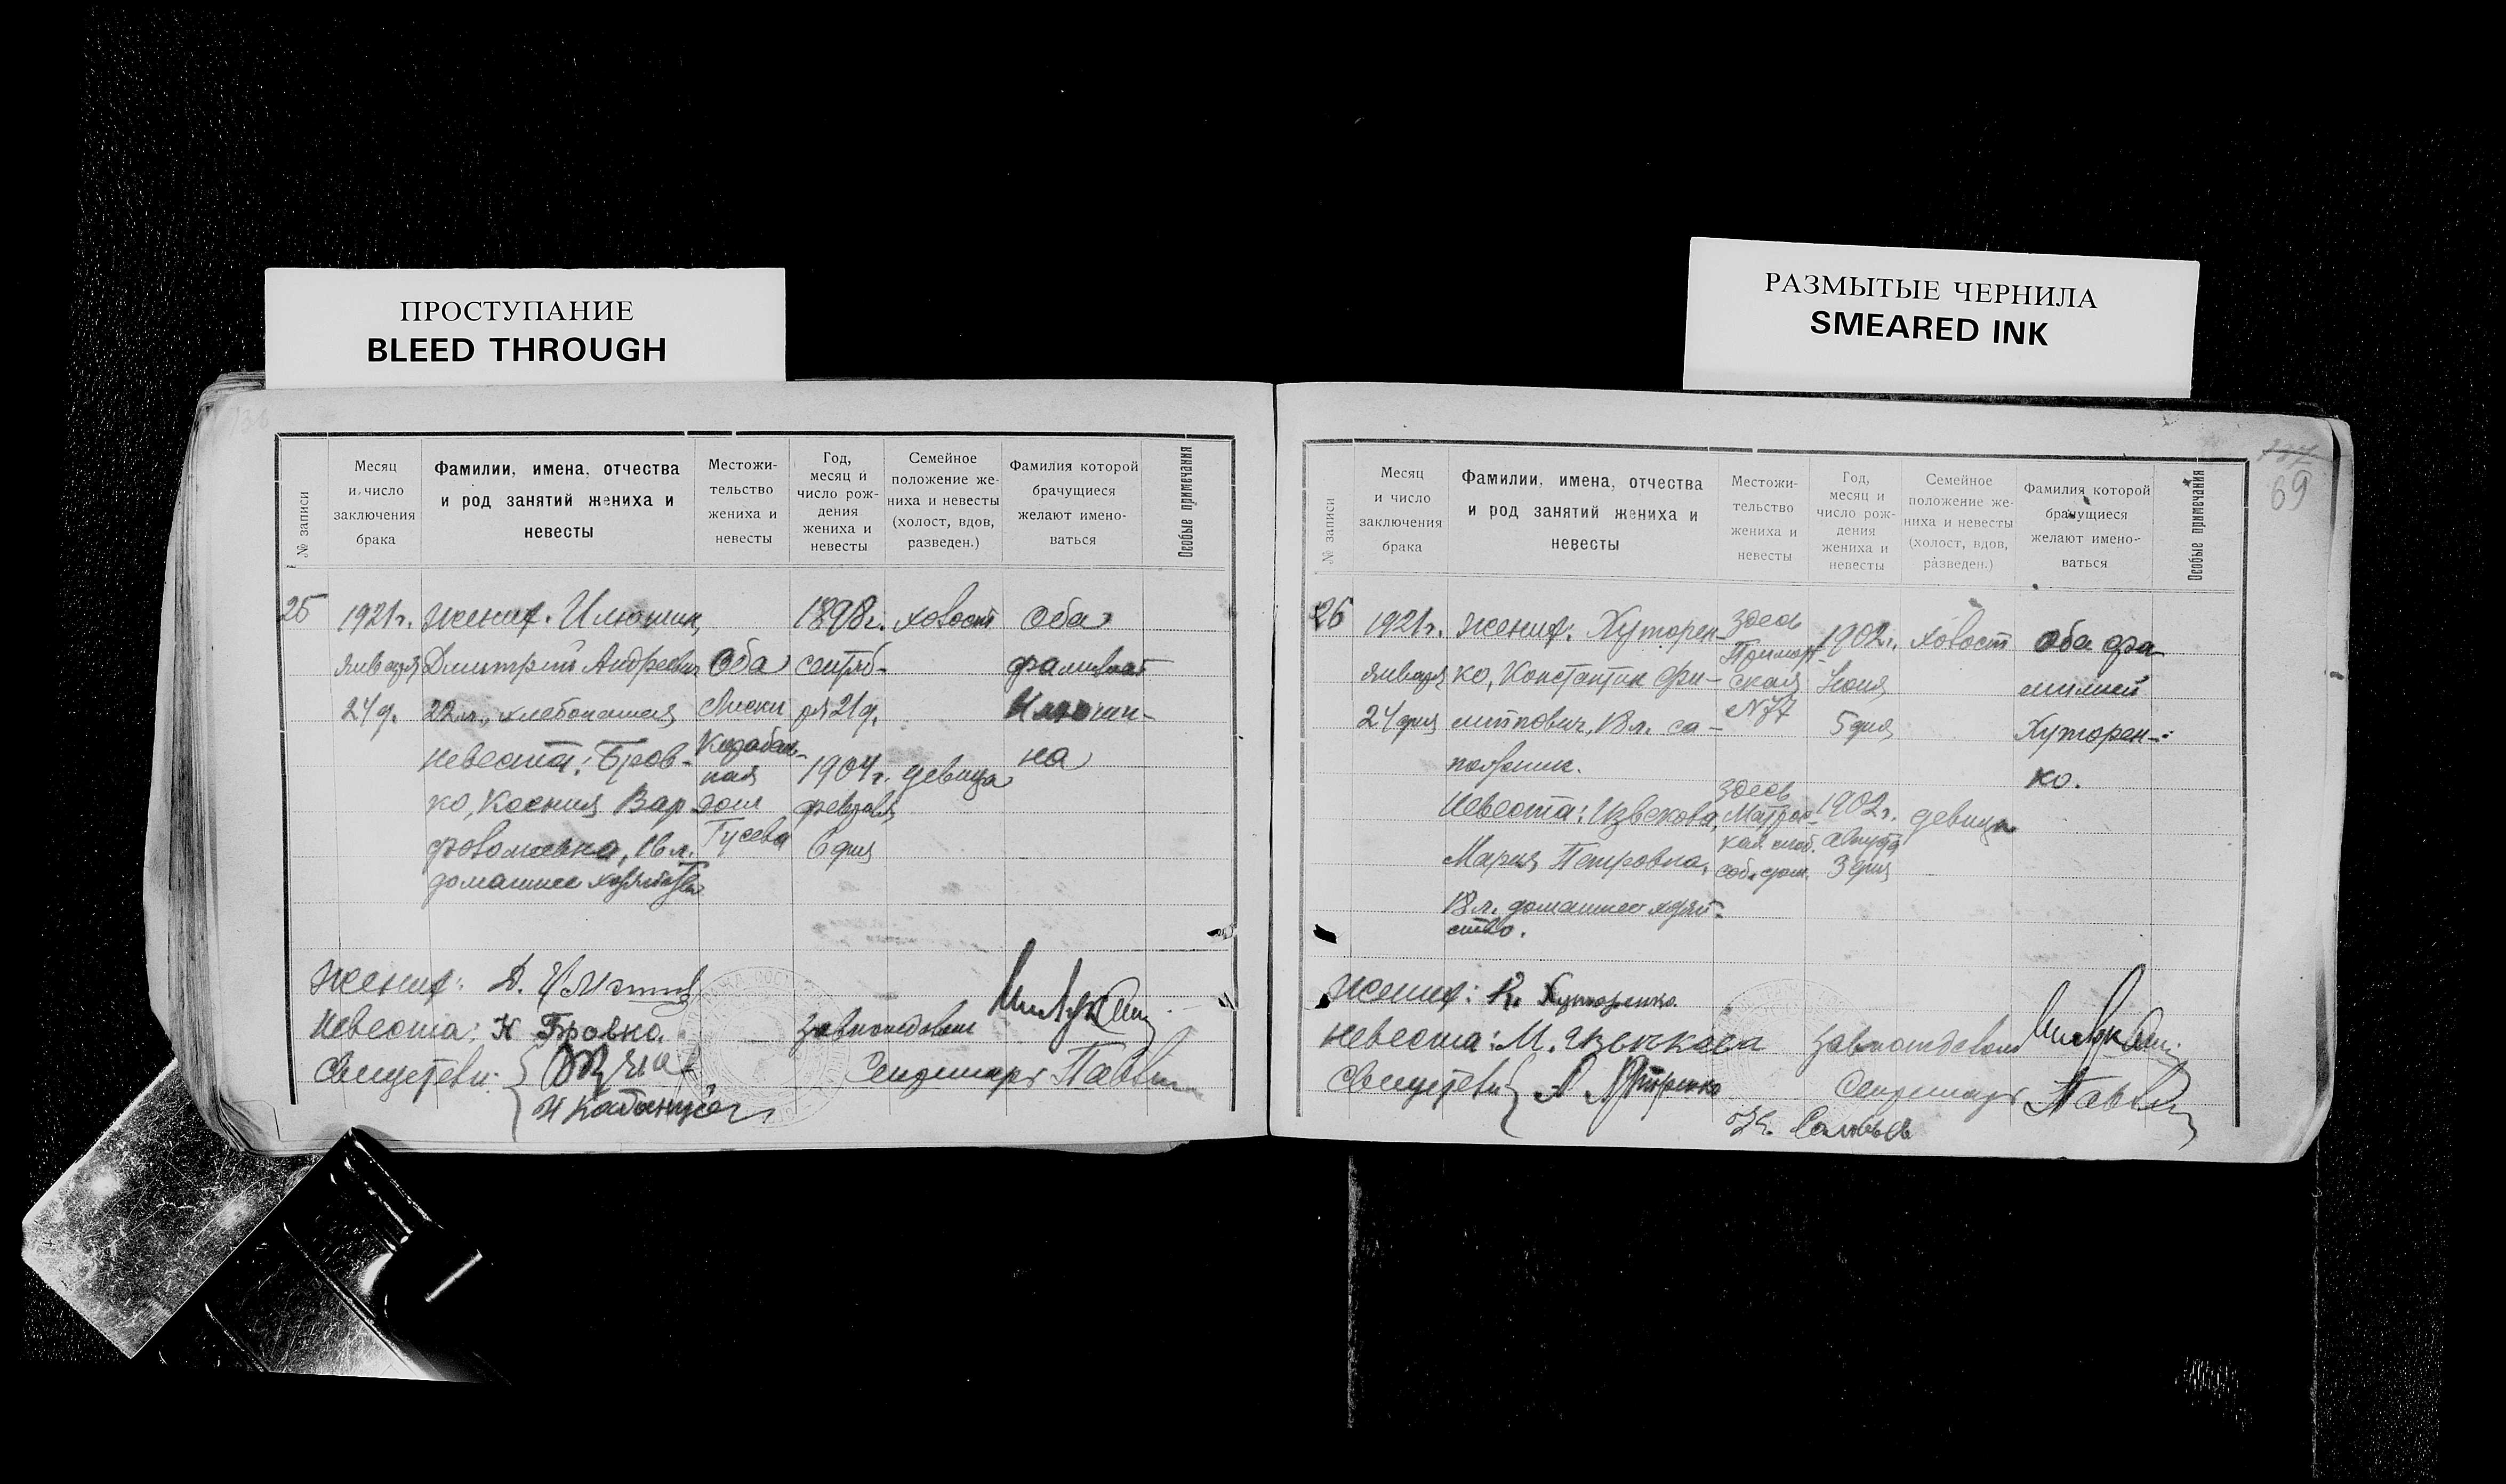 ПРОСТУПАНИЕ
BLEED THROUGH
РАЗМЫТЫЕ ЧЕРНИЛА
SMEARED INK
№ записи
Месяц
и число
заключения
брака
Фамилии, имена, отчества
и род занятий жениха и
невесты
Местожи-
тельство
жениха и
невесты
Год,
месяц и
число рож-
дения
жениха и
невесты
Семейное
положение же-
ниха и невесты
(холост, вдов,
разведен.)
Фамилия которой
брачущиеся
желают имено-
ваться
Особые примечания
25
1921г.
января
24д.
Жених. Илюшин,
Дмитрий Андреевич
22л., хлебопашец
Невеста: Бров-
ко, Ксения Вар
фоломеевна, 16л.
домашнее
Оба
Лиски
дом
Гусева
1898г.
сентяб-
ря 21д.
1904г.
февраля
6 дня
холост
девица
Оба
на
Жених: Д.
Невеста: К Бровко.
Свидетели:
Секретарь
69
№ записи
Месяц
и число
заключения
брака
Фамилии, имена, отчества
и род занятий жениха и
невесты
Местожи-
тельство
жениха и
невесты
Год,
месяц и
число рож-
дения
жениха и
невесты
Семейное
положение же-
ниха и невесты
(холост, вдов,
разведен.)
Фамилия которой
брачущиеся
желают имено-
ваться
Особые примечания
26
1921г.
января
24 дня
Жених: Хуторен-
ко, Константин Фи-
липпович, 18л. са-
пожник.
Невеста: Извекова,
Мария Петровна,
18л. домашнее хозяй-
ство.
здесь
Приморс-
ская
№77
здесь
соб. дом.
1902г.
Июня
5 дня
1902г.
августа
3 дня
холост
девица
Оба фа-
милией
Хуторен-
ко.
Жених: К. Хуторенко
Невеста: М.
Свидетели
Секретарь
Соловьев